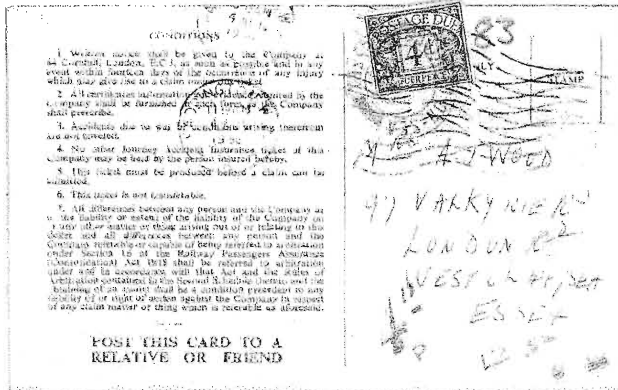 CONDITIONS
1. Written notice shall be given to the Company at
44 Cornhill, London, E.C.3, as soon as possible and in any
event within fourteen days of the occurrence of any injury
which may give rise to a claim under this ticket.
2. All certificates information and evidence required by the
Company shall be furnished in such form as the Company
shall prescribe.
3. Accidents due to war or conditions arising therefrom
are not covered.
4. No other Journey Accident Insurance ticket of this
Company may be held by the person insured hereby.
5. This ticket must be produced before a claim can be
admitted.
6. This ticket is not transferable.
7. All differences between any person and the Company as
to the liability or extent of the liability of the Company on
any other matter or thing arising out of or relating to this
ticket and all differences between any person and the
Company referable or capable of being referred to arbitration
under Section 16 of the Railway Passengers Assurance
(Consolidation) Act 1918 shall be referred to arbitration
under and in accordance with that Act and the Rules of
Arbitration contained in the Second Schedule thereto and the
obtaining of an award shall be a condition precedent to any
liability of or right of action against the Company in respect
of any claim matter or thing which is referable as aforesaid.
POST THIS CARD TO A
RELATIVE OR FRIEND
POSTAGE DUE
4d
83
STAMP
A J WOOD
97
LONDON Rd
ESSEX